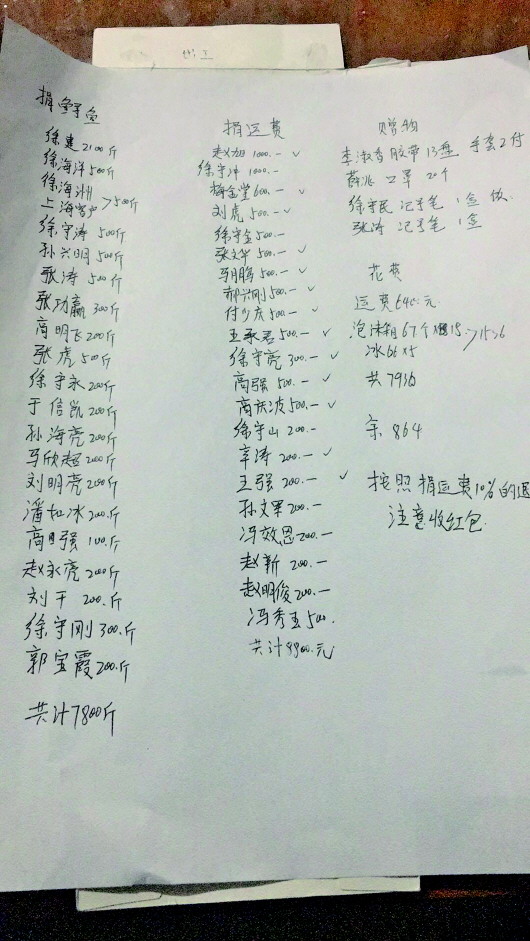 捐鲜鱼
徐建2100斤
徐海洋500斤
徐海洲
上海客户>500斤
徐守涛 500斤
孙兴明 500斤
张涛 500斤
张功赢 300斤
高明飞200斤
张虎 500斤
徐守永200斤
于信凯200斤
孙海亮200斤
马欣超200斤
刘明亮200斤
潘如冰200斤
高强 100斤
赵永虎200斤
刘干 200.斤
徐守刚300.斤
郭宝霞200.斤
共计7800斤
捐运费
赵 1000.- ✓
徐守冲 1000.-
梅金堂600.- ✓
刘虎 500.- ✓
徐守金500.-
张文华 500.- ✓
马月鹏 500.- ✓
郝兴刚500.- ✓
付少庆500.- ✓
王承君500.- ✓
徐守亮 300.- ✓
高强 500.- ✓
高庆波500.- ✓
徐守山 200.-
辛涛 200.- ✓
王强 200.- ✓
孙文军 200.-
冯效恩200.-
赵新 200.-
赵明俊200.-
冯秀玉500.
共计9900.元
赠物
李淑香 胶带13盘 手套2付
薛兆 口罩 20个
徐守民 记号笔 1盒
张涛 记号笔 1盒
花费
运费6400.元
泡沫箱67个 >1536
冰66×5
共7936
余 864
按照捐运费10%的退
注意收红包.